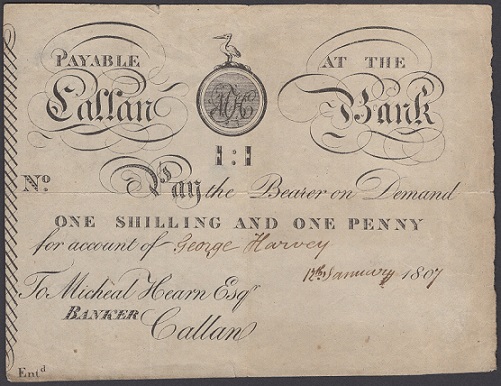 PAYABLE AT THE
Callan Bank
1:1
No.
Pay the Bearer on Demand
ONE SHILLING AND ONE PENNY
for account of George Harvey
12th January 1807
To Micheal Hearn Esqr
BANKER
Callan
Entd